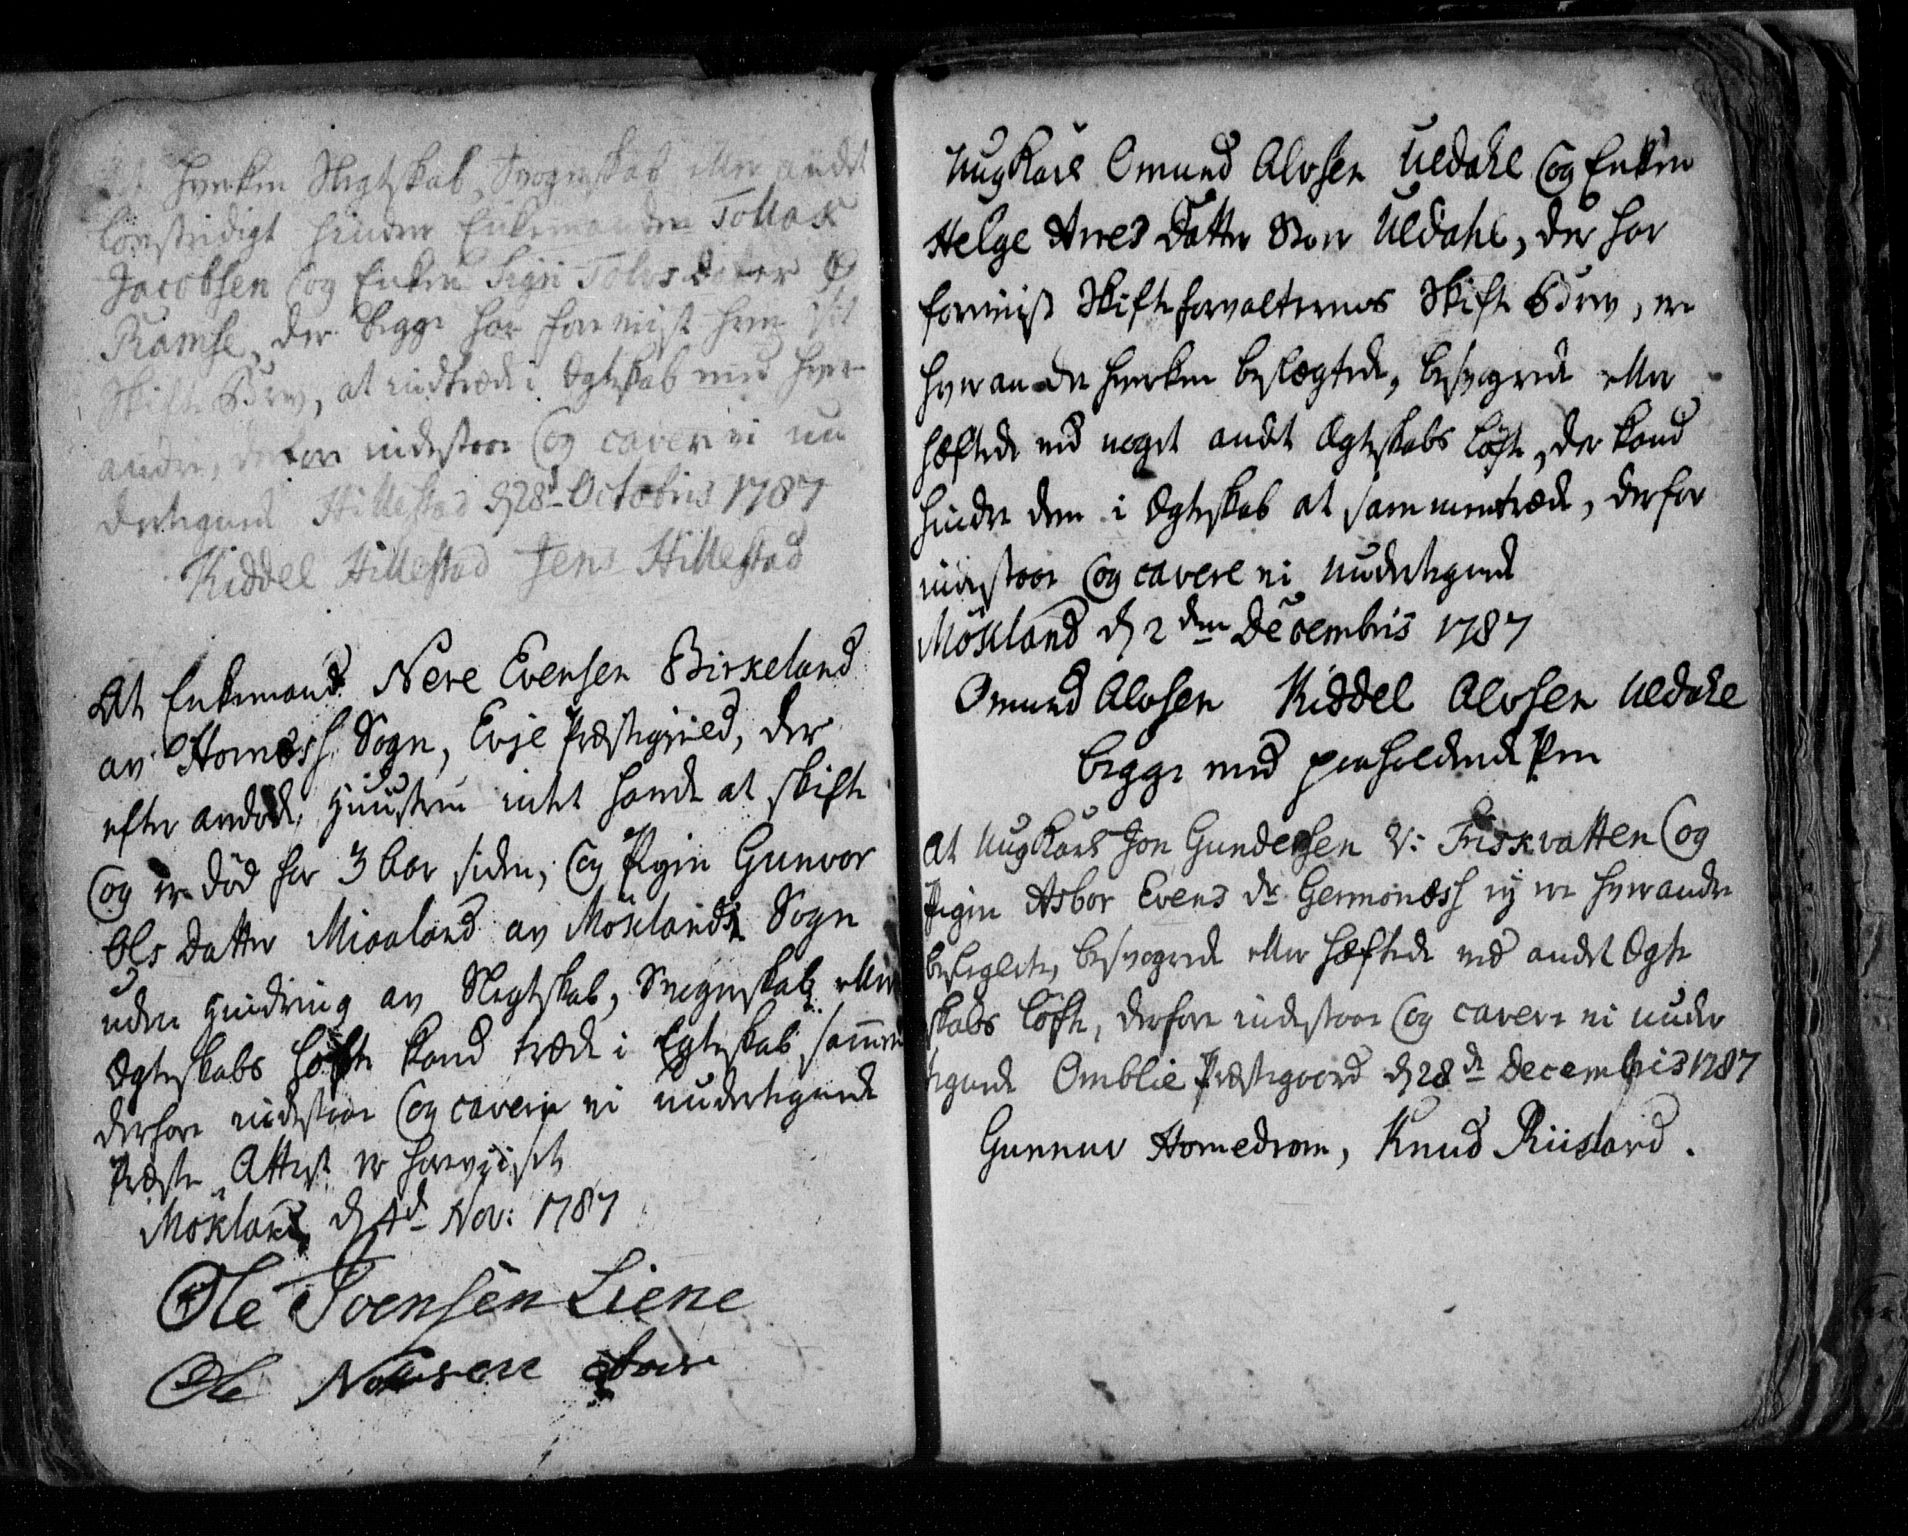 At hverken Slegtskab, Svogerskab eller andet
lovstridigt hindrer Enkemanden Tollak
Jacobsen og Enken Sigri Tolvsdatter
Ramse, der begge har foreviist
Skifte Brev, at indtræde i Ægteskab med hver
andre, derfore indestaar og cavere vi un
dertegnede Hillestad d 28d Octobris 1787
Kiddel Hillestad Jens Hillestad
At Enkemand Nere Evensen Birkeland
av Hornæss Sogn, Evje Præstegield, der
efter avdøde Huustrue intet hande at skifte
og er død for 3 Aar siden, og Pigen Gunvor
Ols Datter Miaaland av Möklands Sogn
uden Hindring av Slegtskab, Svogerskab eller
Ægteskabs Løfte kand træde i Egteskab sammen
derfore indestaar og cavere vi undertegnede
Præste Attest er foreviiset
Mökland d 4d Nov: 1787
Ole Tvensen Liene
Ole
Ung Karl Omund Alvsen Uldahl og Enken
Helge Aires Datter Uldahl, der har
foreviist Skifteforvalternes Skifte Brev, ere
hverandre hverken beslægtede, besvogrede eller
hæftede ved noget andet Ægteskabs Løfte, der kand
hindre dem i Ægteskab at sammentræde, derfor
indestaar og cavere vi undertegnede
Mökland d 2den Decembris 1787
Omund Alvsen Kiddel Alvsen Uldahl
begge med paaholdende Pen
At Ung Karl Jon Gundersen V: Friskvatten og
Pigen Asbor Evens dr Germonæss ej ere hverandre
beslegtede, besvogrede eller hæftede ved andet Ægte
skabs Løfte, derfore indestaar og cavere vi under
tegnede Omblie Præstegaard d 28d Decembris 1787
Gunnuv Homedrom, Knud Riisland.